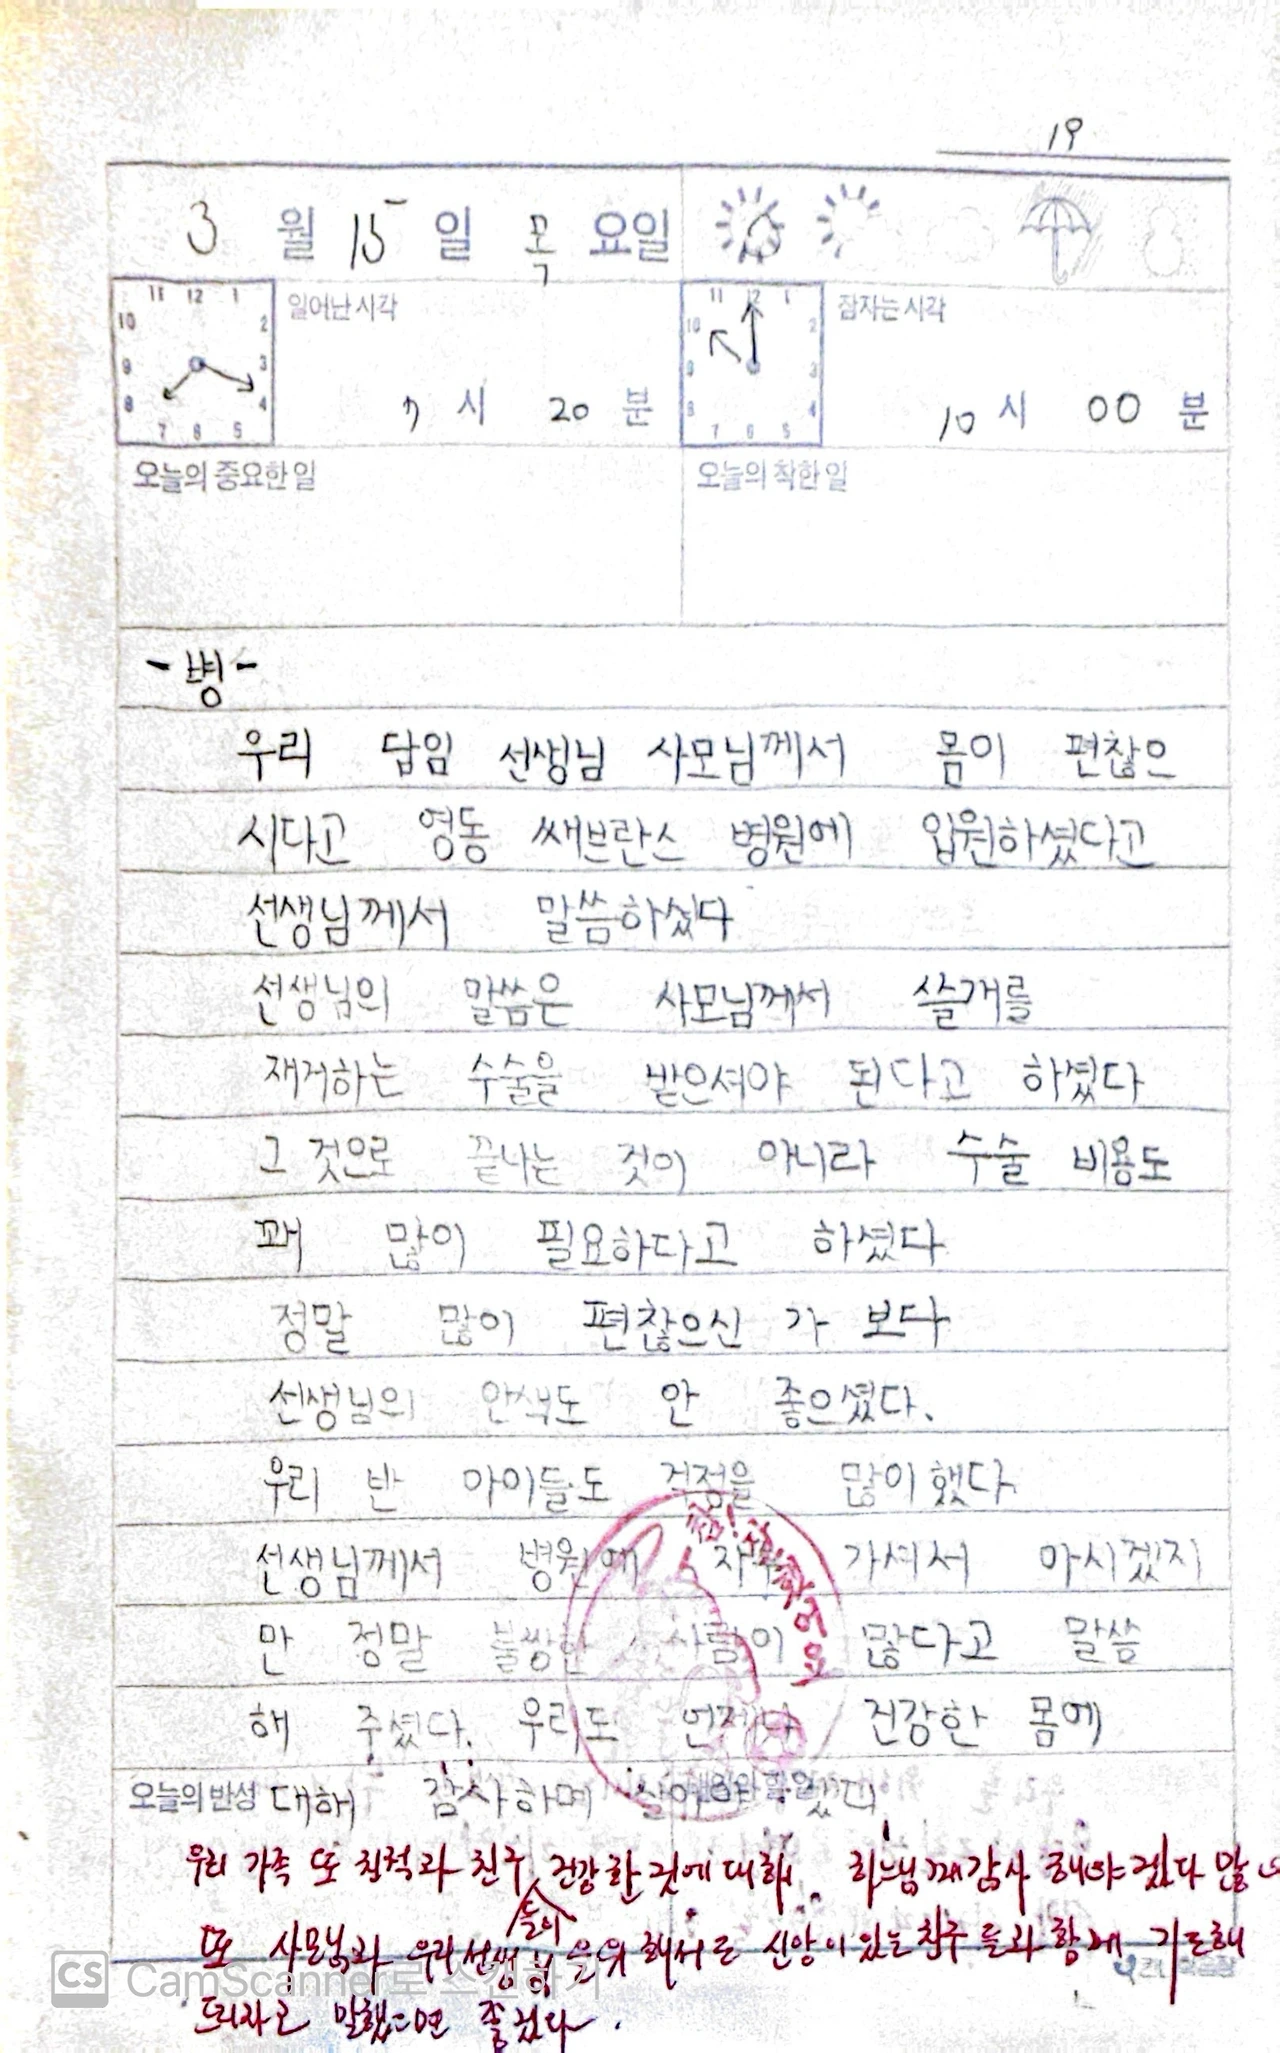 19
3 월 15 일 목 요일
11 12 1
10 2
9 3
8 4
7 6 5
일어난 시각
7 시 20 분
11 12 1
10 2
9 3
8 4
7 6 5
잠자는 시각
10 시 00 분
오늘의 중요한 일
오늘의 착한 일
-병-
우리 답임 선생님 사모님께서 몸이 편찮으
시다고 영동 쌔브란스 병원에 입원하셨다고
선생님께서 말씀하셨다
선생님의 말씀은 사모님께서 쓸개를
재거하는 수술을 받으셔야 된다고 하셨다
그 것으로 끝나는 것이 아니라 수술 비용도
꽤 많이 필요하다고 하셨다
정말 많이 편찮으신 가 보다
선생님의 안색도 안 좋으셨다.
우리 반 아이들도 걱정을 많이 했다
선생님께서 병원에 자주 가셔서 아시겠지
만 정말 불쌍한 사람이 많다고 말씀
해 주셨다. 우리도 언제나 건강한 몸에
오늘의 반성 대해 감사하며 살아야 겠다
참! 잘했어요
우리 가족 또 친척과 친구들이 건강한 것에 대해 하느님께 감사 해야 겠다 말
또 사모님과 우리 선생님을 위해서도 신앙이 있는 친구들과 함께 기도해
드리자고 말했으면 좋겠다.
CS CamScanner로 스캔하기